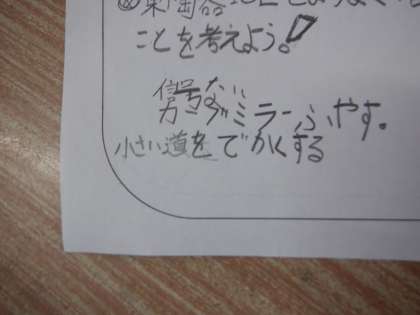 ことを考えよう。
信号ない
カーブミラーふやす。
小さい道をでかくする